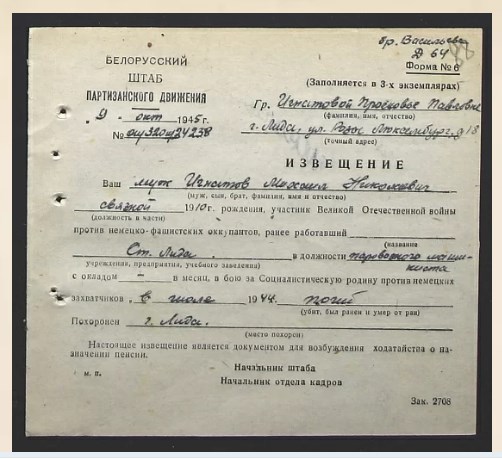 гр. Васильева
Д 64
БЕЛОРУССКИЙ
ШТАБ
ПАРТИЗАНСКОГО ДВИЖЕНИЯ
9 окт 1945 г.
№
Форма № 6
(Заполняется в 3-х экземплярах)
Гр. Игнатовой Просковье Павловне
(фамилия, имя, отчество)
г. Лида, ул. Розы Люксембург, д 18
(точный адрес)
ИЗВЕЩЕНИЕ
Ваш муж Игнатов Михаил Николаевич
(муж, сын, брат, фамилия, имя и отчество)
связной 1910 г. рождения, участник Великой Отечественной войны
(должность в части)
против немецко-фашистских оккупантов, ранее работавший
(название
Ст. Лида в должности паровозного машиниста
учреждения, предприятия, учебного заведения)
с окладом – в месяц, в бою за Социалистическую родину против немецких
захватчиков в июле 1944 погиб
(убит, был ранен и умер от ран)
Похоронен г. Лида.
(место похорон)
Настоящее извещение является документом для возбуждения ходатайства о на-
значении пенсии.
м. п.
Начальник штаба
Начальник отдела кадров
Зак. 2708